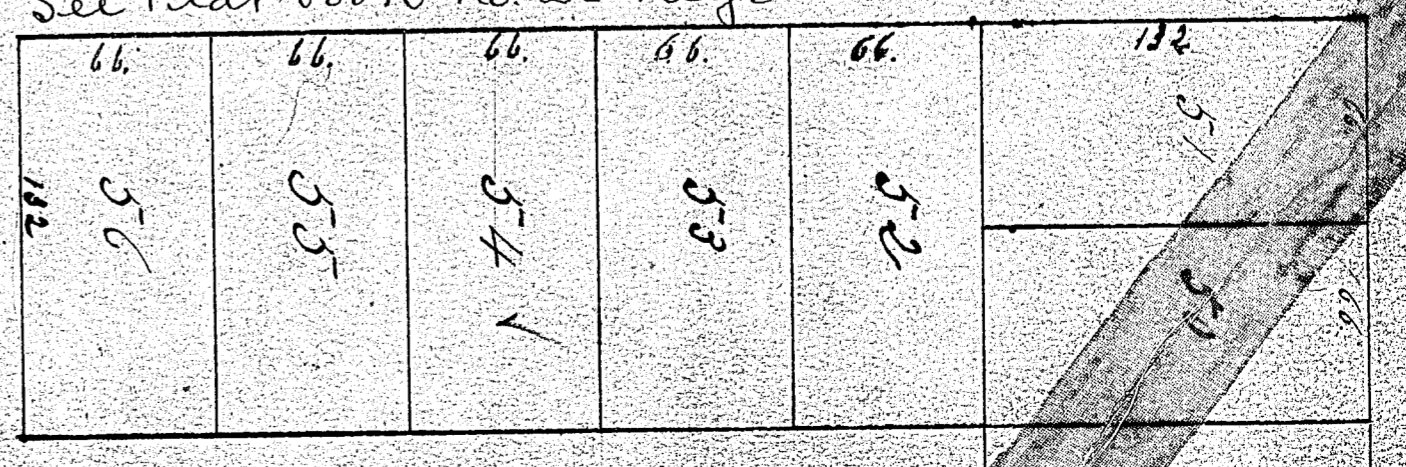 See Plat Book No. Page
66. 66. 66. 66. 66. 132
132 56 55 54 ✓ 53 52 51 66.
50 66.